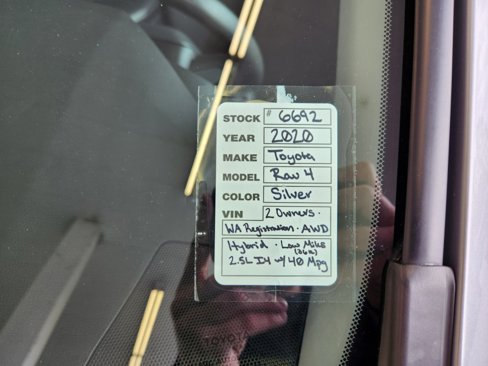 STOCK # 6692
YEAR 2020
MAKE Toyota
MODEL Rav 4
COLOR Silver
VIN 2 Owners.
WA Registration · AWD
Hybrid · Low Miles
(36k)
2.5L I4 w/ 40 Mpg
TOYOTA